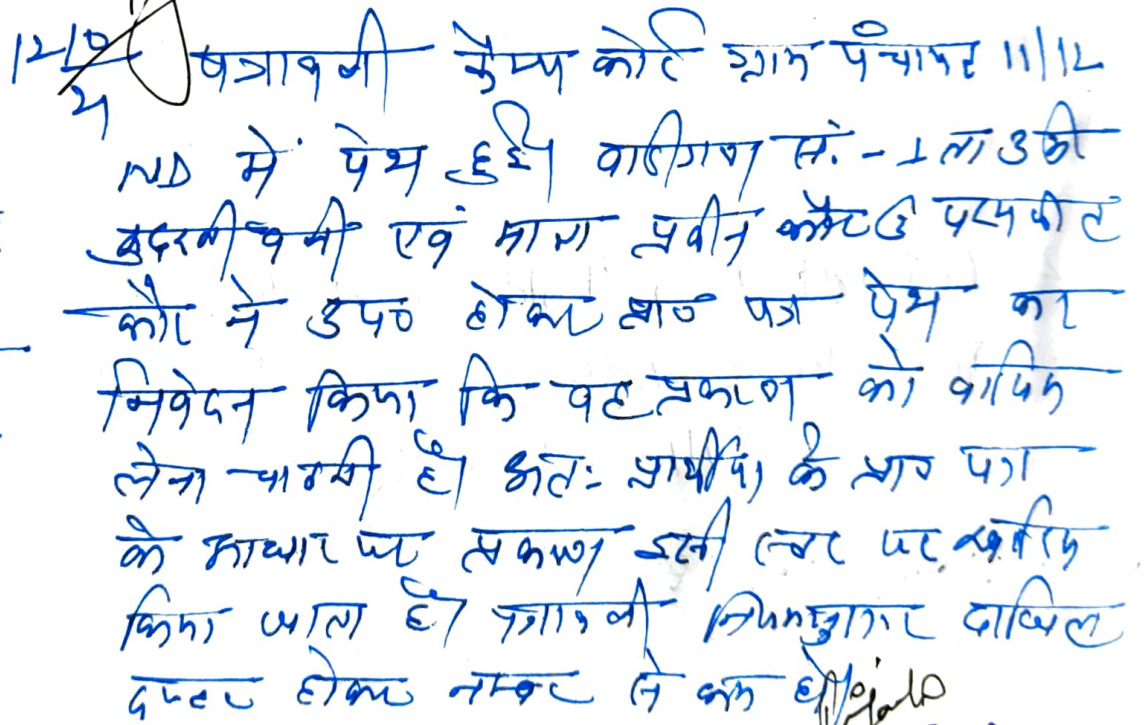 पत्रावली कैम्प कोर्ट ग्राम पंचायत 11/12
ND में पेश हुई। वादीगण सं.-1 ता 3 की
कुदरती वली एवं माता प्रवीन कौर
कौर ने उप० होकर प्रा० पत्र पेश कर
निवेदन किया कि वह प्रकरण को वापिस
लेना चाहती है। अतः प्रार्थीया के प्रा० पत्र
के आधार पर प्रकरण इसी स्तर पर खारिज
किया जाता है। पत्रावली नियमानुसार दाखिल
दफ्तर होकर नम्बर से कम हो।